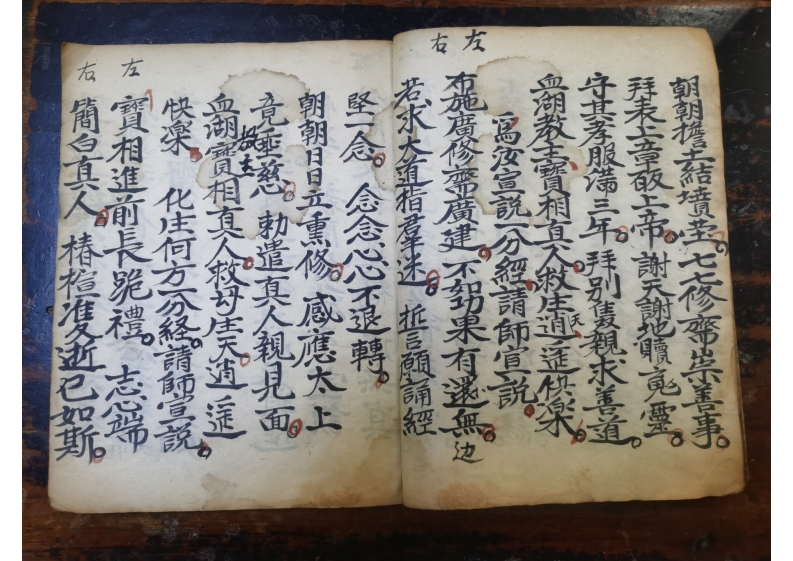 右 左
朝朝擔土結墳塋。七七修齋崇善事。
拜表上章啟上帝。謝天謝地贖䰟靈。
守其孝服滿三年。拜別雙親求善道。
血湖教主寶相真人救生逍遥快楽
天
為汝宣説一分經請師宣説。
布施廣修齋廣建。不知功果有還無边
若求大道指羣迷。拒言願誦經
右 左
堅一念。念念心心不退轉。
朝朝日日立熏修。感應太上
竟垂慈。勅遣真人親見面
血湖寶相真人救母生天逍遥
快楽。化生何方一分経。請師宣説。
寶相進前長跪禮。志心端
簡白真人。椿楦准逝已如斯。